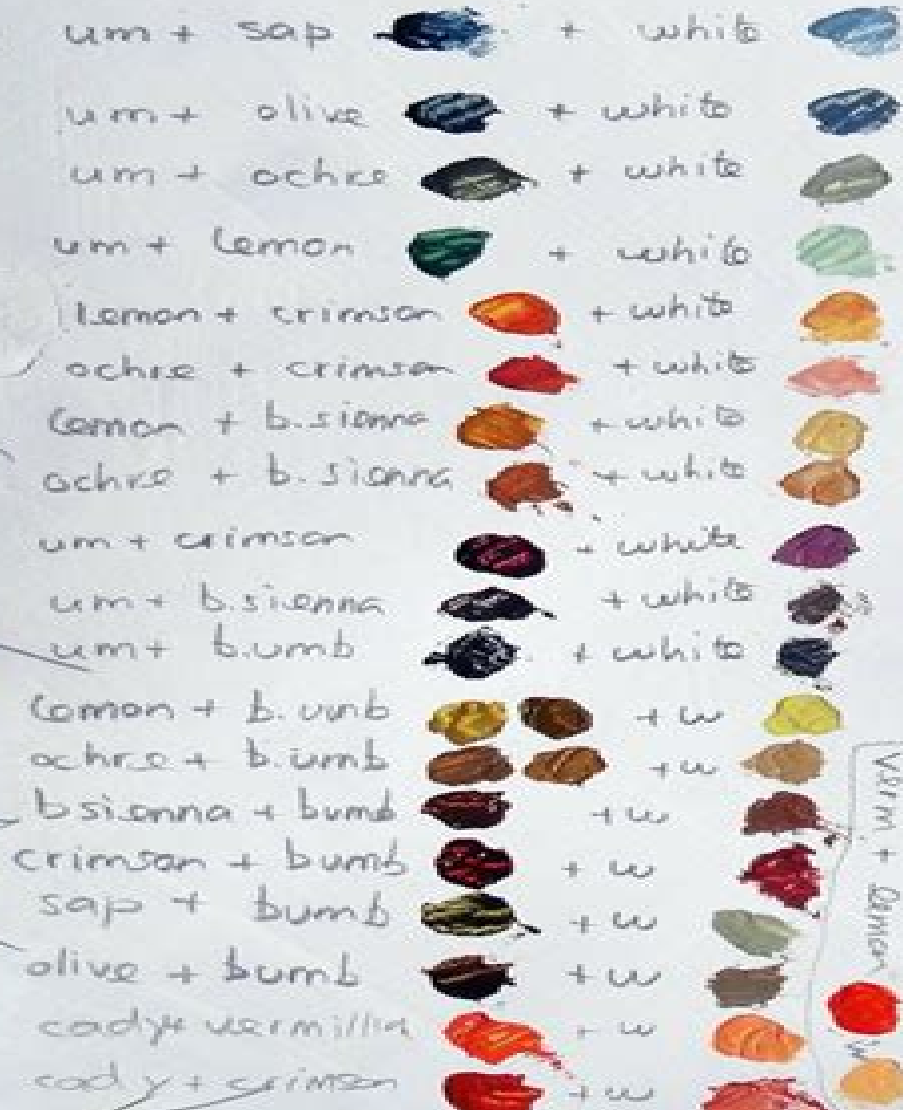 um + sap + white
um + olive + white
um + ochre + white
um + lemon + white
Lemon + crimson + white
ochre + crimson + white
lemon + b.sienna + white
ochre + b.sienna + white
um + crimson + white
um + b.sienna + white
um + b.umb + white
lemon + b.umb + w
ochre + b.umb + w
bsienna + bumb + w
crimson + bumb + w
sap + bumb + w
olive + bumb + w
cady + vermillin + w
cad y + crimson + w
Verm + lemon
w